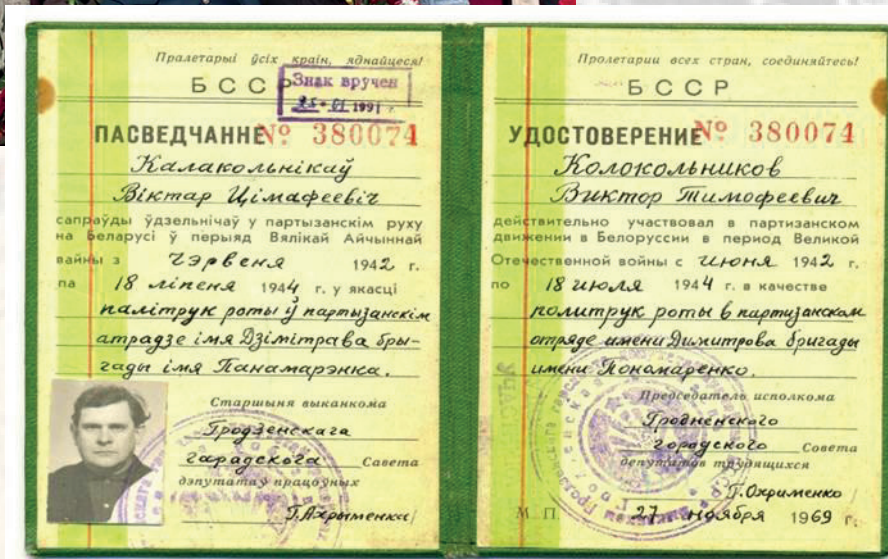 Пралетарыі ўсіх краін, яднайцеся!
БССР
Знак вручен
25 • 01 1991 г.
ПАСВЕДЧАННЕ № 380074
Калакольнікаў
Віктар Цімафеевіч
сапраўды ўдзельнічаў у партызанскім руху
на Беларусі ў перыяд Вялікай Айчыннай
вайны з Чэрвеня 1942 г.
па 18 ліпеня 1944 г. у якасці
палітрук роты ў партызанскім
атрадзе імя Дзімітрава бры-
гады імя Панамарэнка.
Старшыня выканкома
Гродзенскага
гарадскога Савета
дэпутатаў працоўных
Г. Ахрыменка/
Пролетарии всех стран, соединяйтесь!
БССР
УДОСТОВЕРЕНИЕ № 380074
Колокольников
Виктор Тимофеевич
действительно участвовал в партизанском
движении в Белоруссии в период Великой
Отечественной войны с июня 1942 г.
по 18 июля 1944 г. в качестве
политрук роты в партизанском
отряде имени Димитрова бригады
имени Пономаренко.
Председатель исполкома
Гродненского
городского Совета
депутатов трудящихся
Г. Охрименко/
М. П. 27 ноября 1969 г.